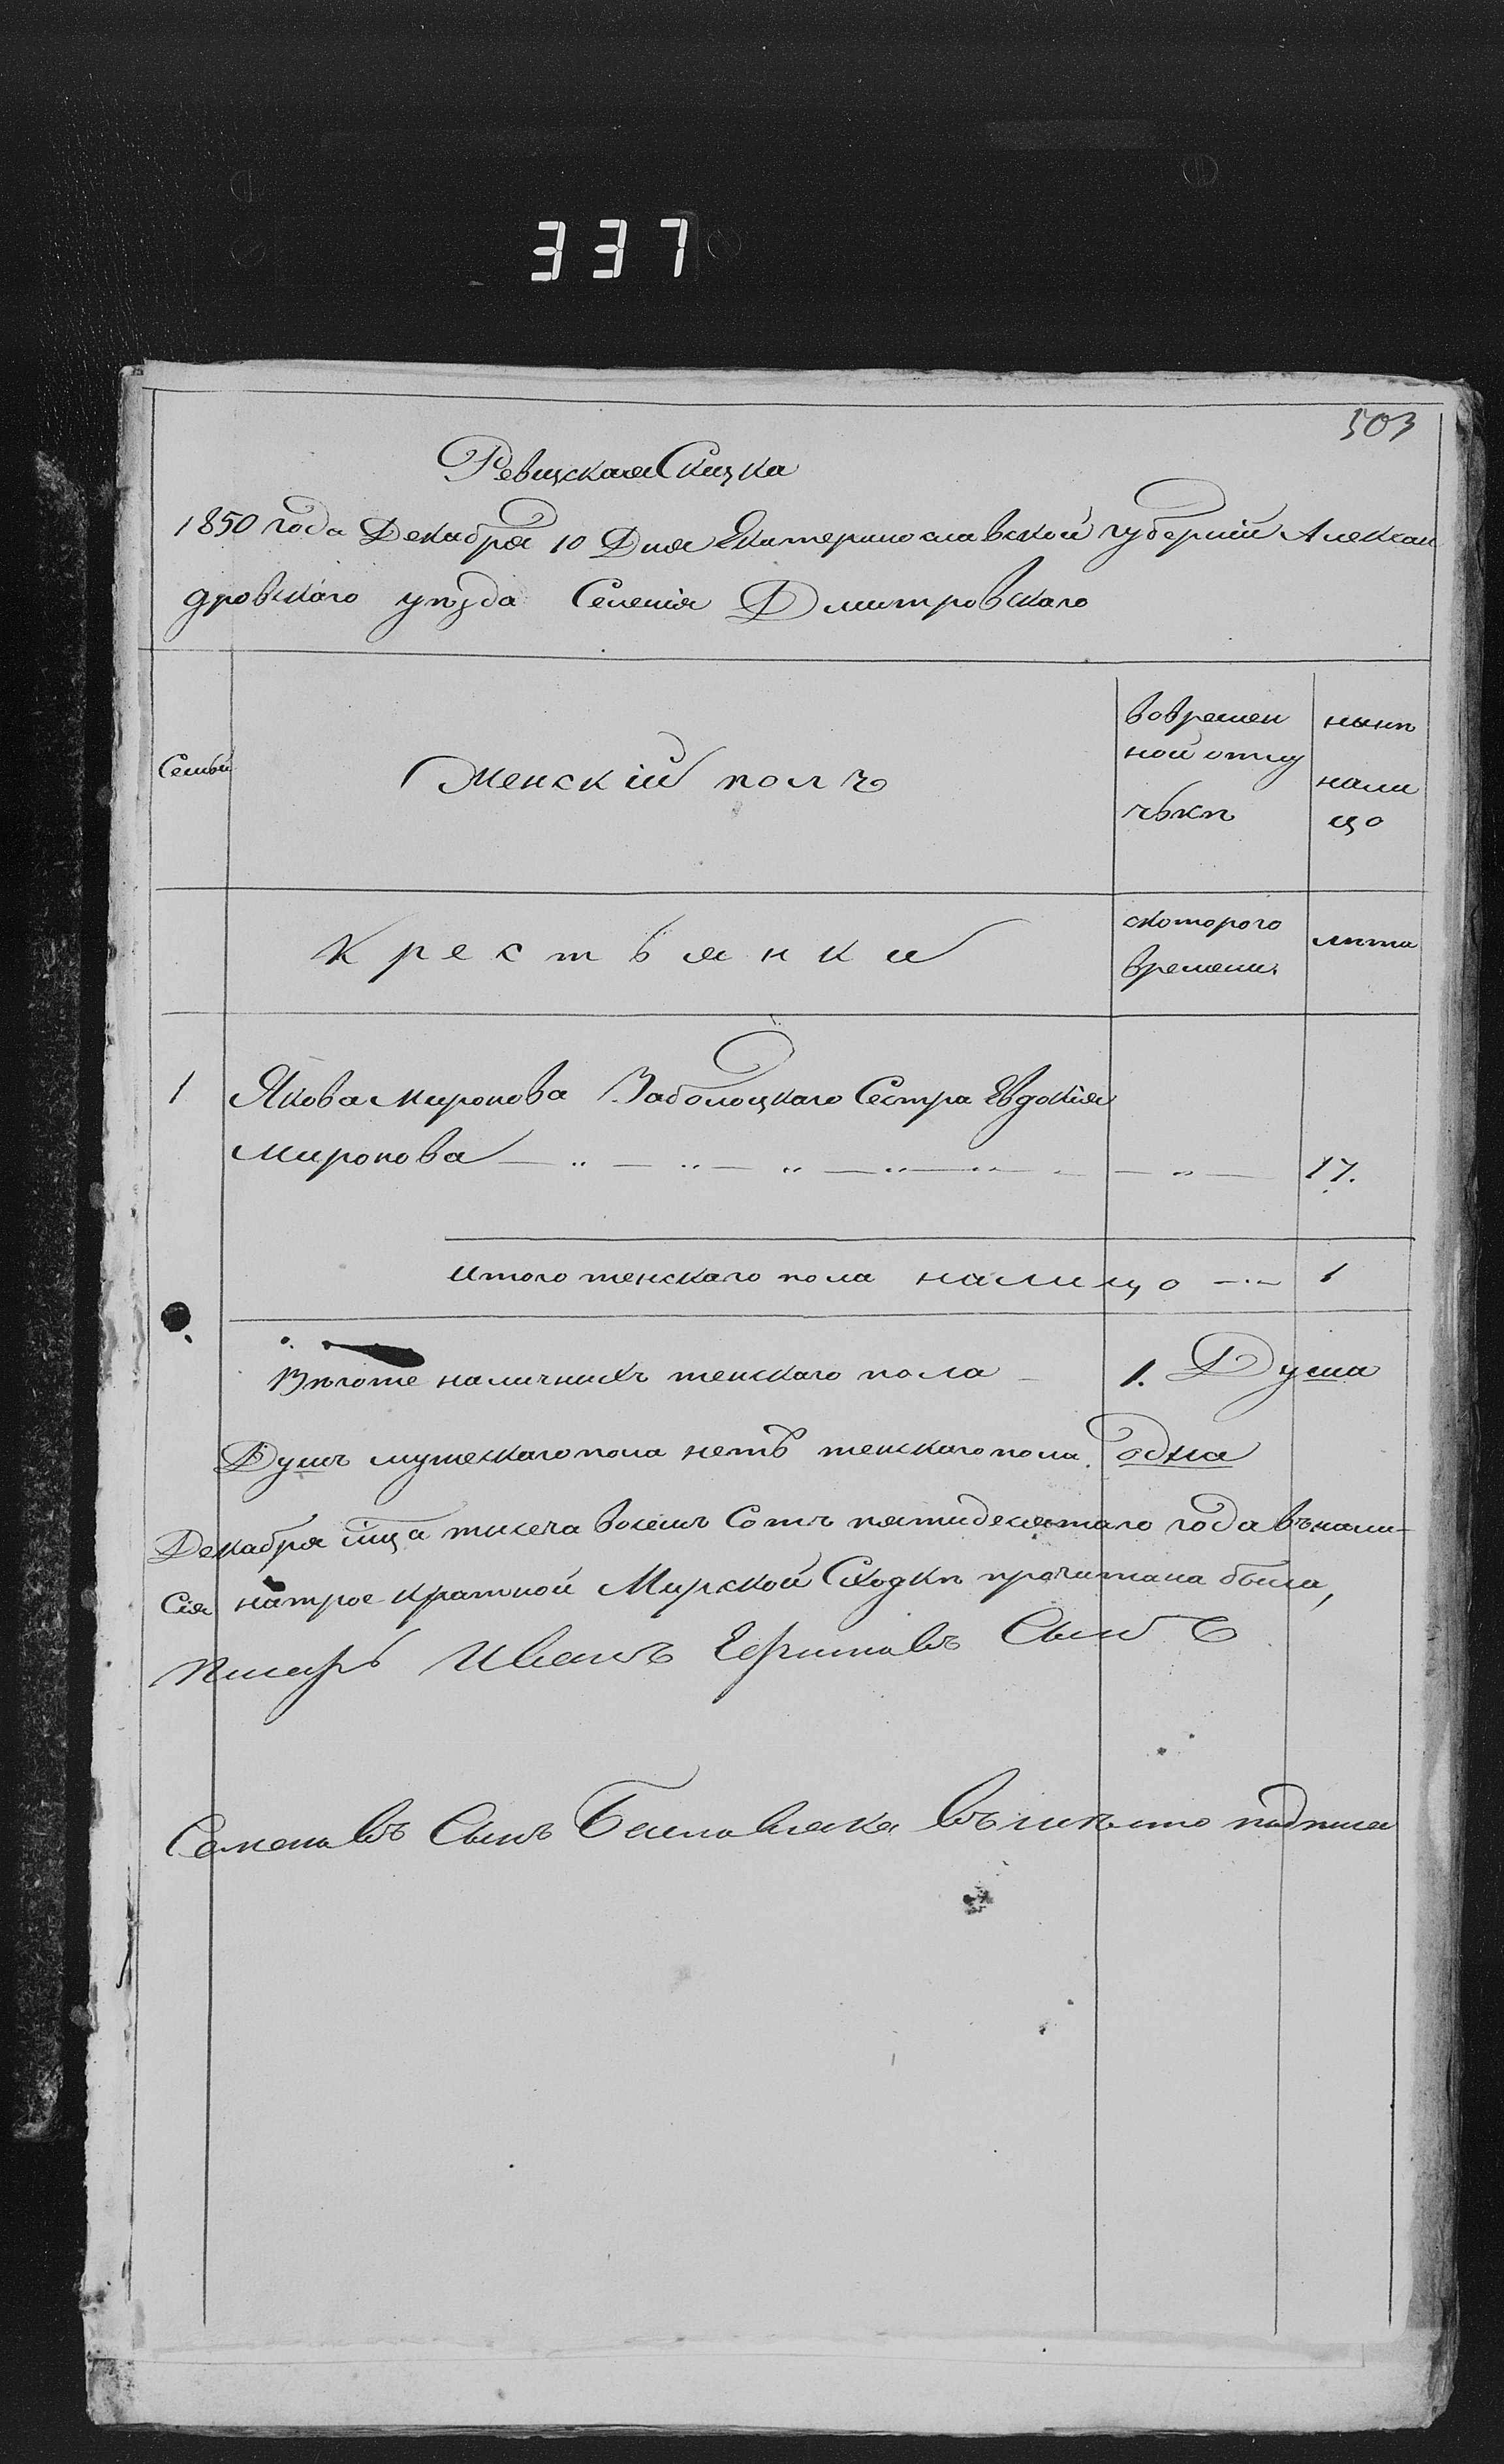 337
503
Ревизская Сказка
1850 года Декабря 10 Дня Екатеринославской губернии Алексан
дровскаго уѣзда Селенія Дмитровскаго
Семьи
Женскій полъ
вовремен
ной отлу
чькѣ
нынѣ
нали
цо
Крестьянки
скоторого
времени
лѣта
1
Якова Миронова Заболоцкаго Сестра Евдокія
Миронова
17.
Итого женскаго пола налицо
1
Итого же наличнихъ женскаго пола
1. Душа
Душъ мужескаго пола нетъ женскаго пола одна
Декабря тисеча восемъ Сотъ пятидесятаго года
Сія натрое кратной Мирской Сходкѣ прочитана была,
писарь Иванъ Сынъ
Семеновъ Сынъ